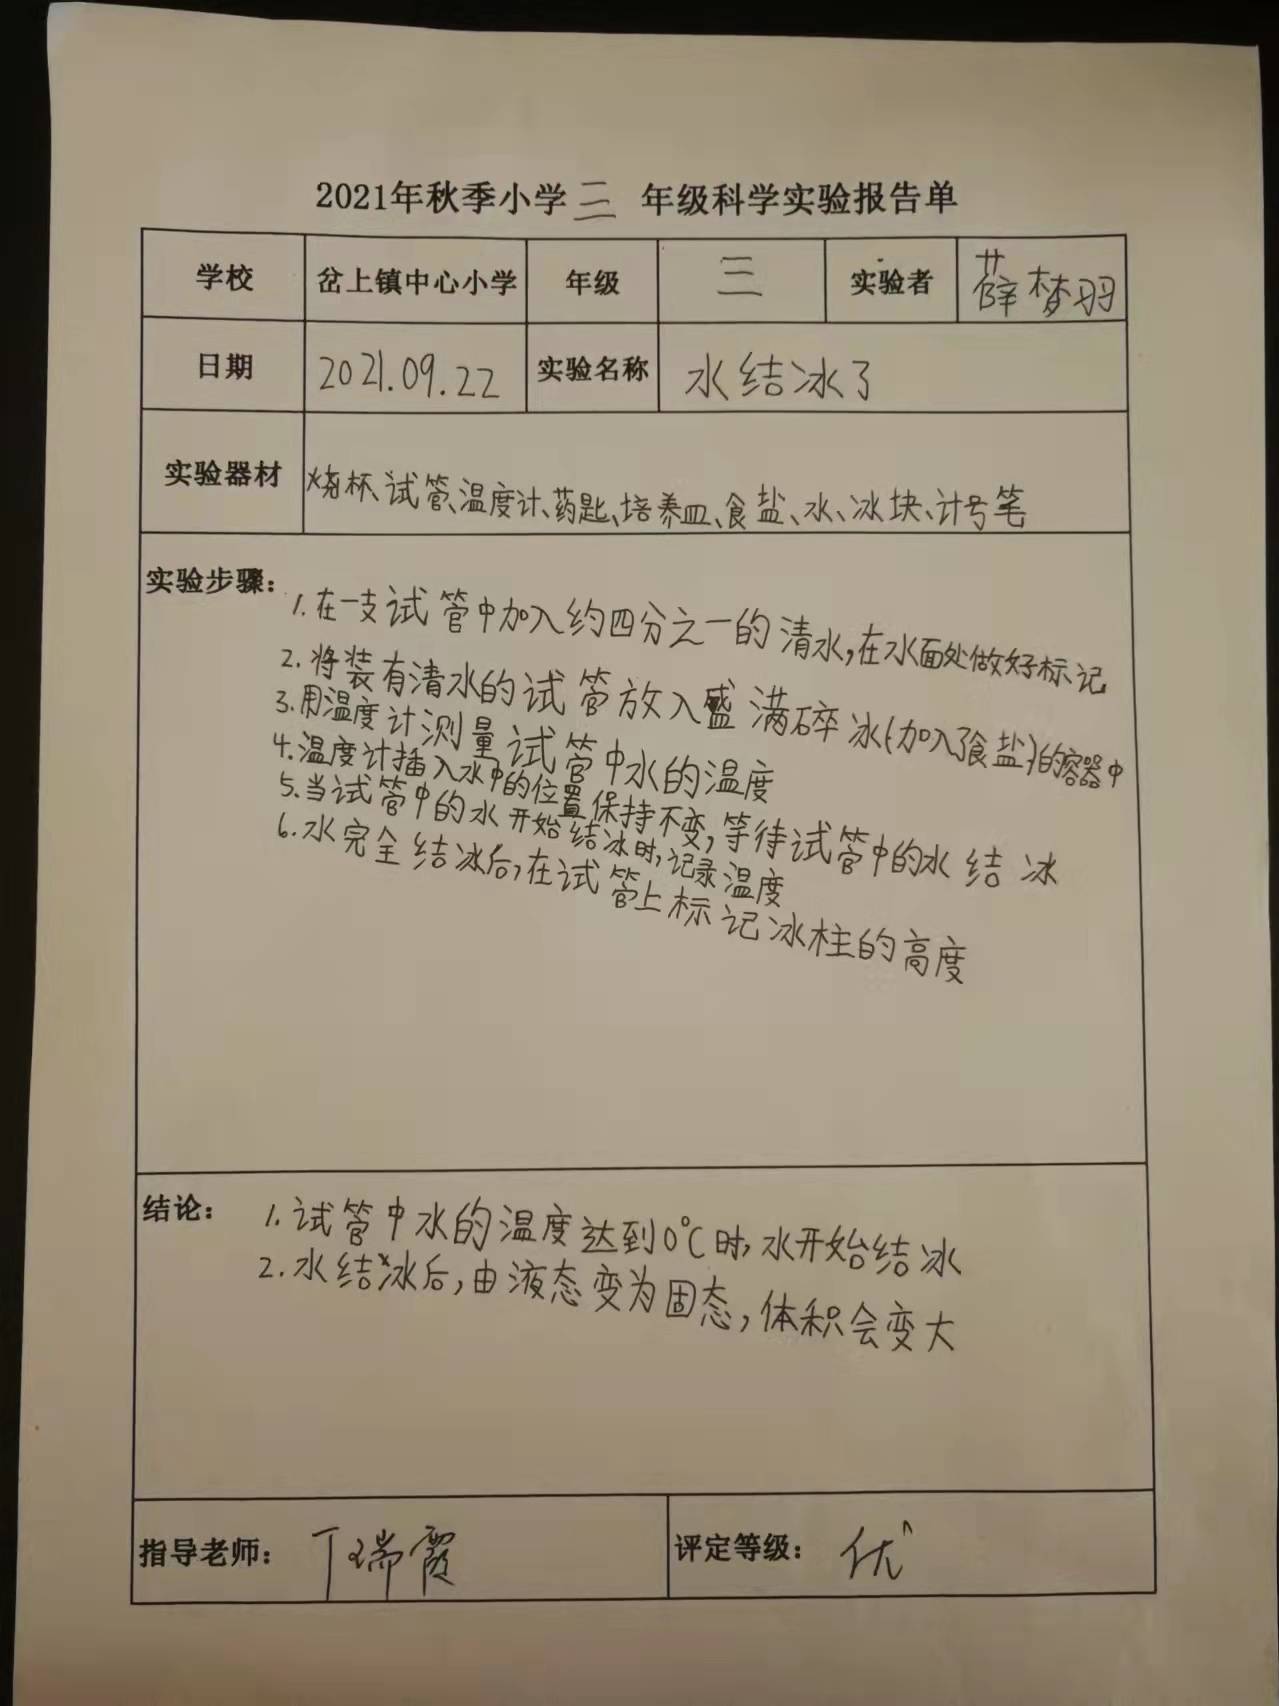 2021年秋季小学三 年级科学实验报告单
学校 岔上镇中心小学 年级 三 实验者 薛梦羽
日期 2021.09.22 实验名称 水结冰了
实验器材 烧杯、试管、温度计、药匙、培养皿、食盐、水、冰块、计号笔
实验步骤:
1.在一支试管中加入约四分之一的清水,在水面处做好标记
2.将装有清水的试管放入盛满碎冰(加入了食盐)的容器中
3.用温度计测量试管中水的温度
4.温度计插入水中的位置保持不变,等待试管中的水结冰
5.当试管中的水开始结冰时,记录温度
6.水完全结冰后,在试管上标记冰柱的高度
结论: 1.试管中水的温度达到0℃时,水开始结冰
2.水结冰后,由液态变为固态,体积会变大
指导老师: 丁瑞霞 评定等级: 优